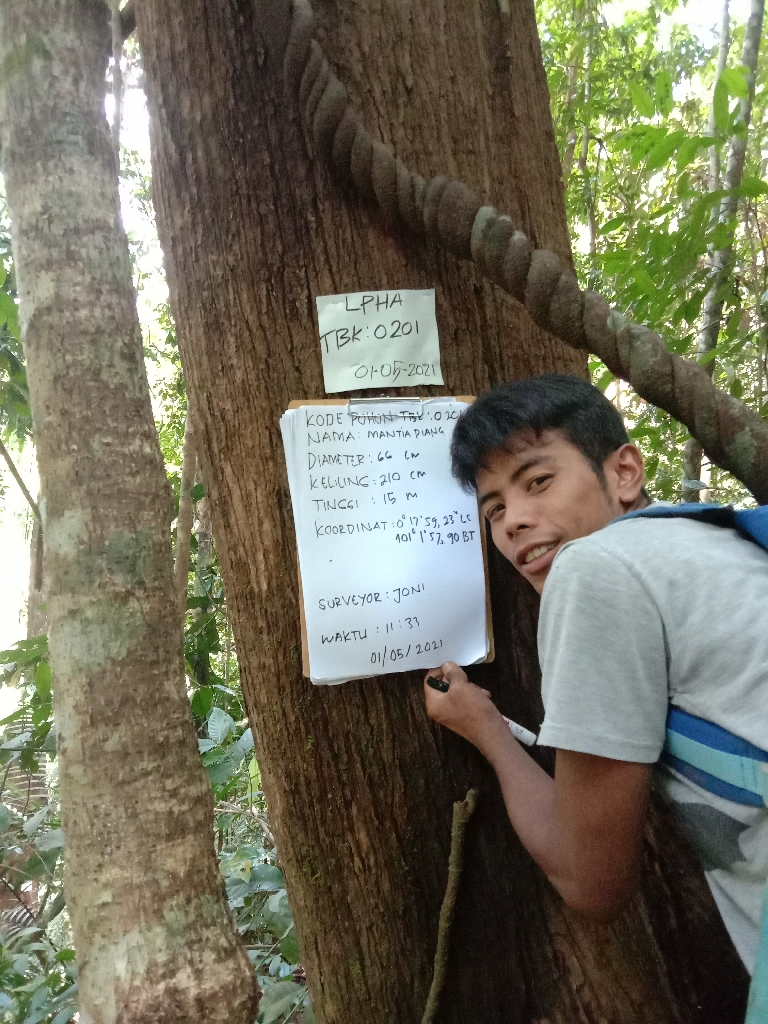 LPHA
TBK: 0201
01-05-2021
KODE POHON TBK: 0201
NAMA: MANTIA PIANG
DIAMETER: 66 cm
KELILING: 210 cm
TINGGI : 15 m
KOORDINAT: 0° 17' 59, 23" LS
101° 1' 57, 90 BT
SURVEYOR: JONI
WAKTU : 11:33
01/05/2021